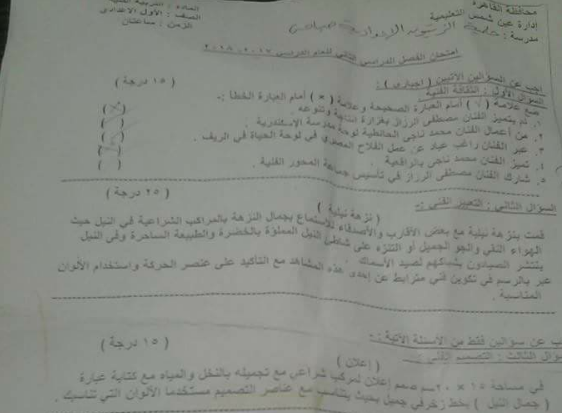 محافظة القاهرة
إدارة عين شمس التعليمية
مدرسة :
المادة : التربية الفنية
الصف : الأول الاعدادى
الزمن : ساعتان
امتحان الفصل الدراسى الثانى للعام الدراسى ٢٠١٧ - ٢٠١٨
اجب عن السؤالين الآتيين ( إجبارى ) : ( ١٥ درجة )
السؤال الأول : الثقافة الفنية
ضع علامة ( √ ) أمام العبارة الصحيحة وعلامة ( × ) أمام العبارة الخطأ :-
١. لم يتميز الفنان مصطفى الرزاز بغزارة إنتاجه وتنوعه. ( )
٢. من أعمال الفنان محمد ناجى الحائطية لوحة مدرسة الإسكندرية. ( )
٣. عبر الفنان راغب عياد عن عمل الفلاح المصرى في لوحة الحياة في الريف. ( )
٤. تميز الفنان محمد ناجى بالواقعية. ( )
٥. شارك الفنان مصطفى الرزاز في تأسيس جماعة المحور الفنية. ( )
السؤال الثانى : التعبير الفنى :- ( ٢٥ درجة )
( نزهة نيلية )
قمت بنزهة نيلية مع بعض الأقارب والأصدقاء للاستمتاع بجمال النزهة بالمراكب الشراعية في النيل حيث
الهواء النقي والجو الجميل أو التنزه على شاطئ النيل المملوءة بالخضرة والطبيعة الساحرة وفى النيل
ينتشر الصيادون بشباكهم لصيد الأسماك
عبر بالرسم في تكوين فني مترابط عن إحدى هذه المشاهد مع التأكيد على عنصر الحركة واستخدام الألوان
المناسبة .
ب عن سؤالين فقط من الأسئلة الآتية :-
ؤال الثالث : التصميم الفنى : ( ١٥ درجة )
( إعلان )
في مساحة ١٥ × ٢٠ سم صمم إعلان لمركب شراعي مع تجميله بالنخل والمياه مع كتابة عبارة
( جمال النيل ) بخط زخرفي جميل بحيث يتناسب مع عناصر التصميم مستخدما الألوان التي تناسبك .